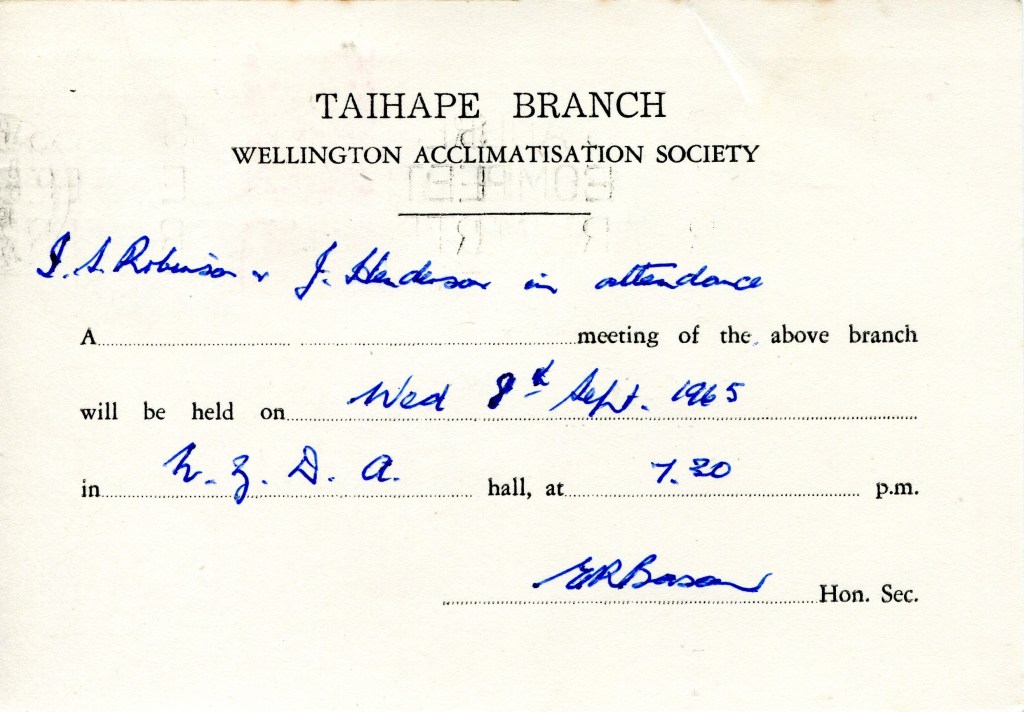 TAIHAPE BRANCH
WELLINGTON ACCLIMATISATION SOCIETY
I. S. Robinson & J. Henderson in attendance
A meeting of the above branch
will be held on Wed 8th Sept. 1965
in N. Z. D. A. hall, at 7.30 p.m.
Hon. Sec.